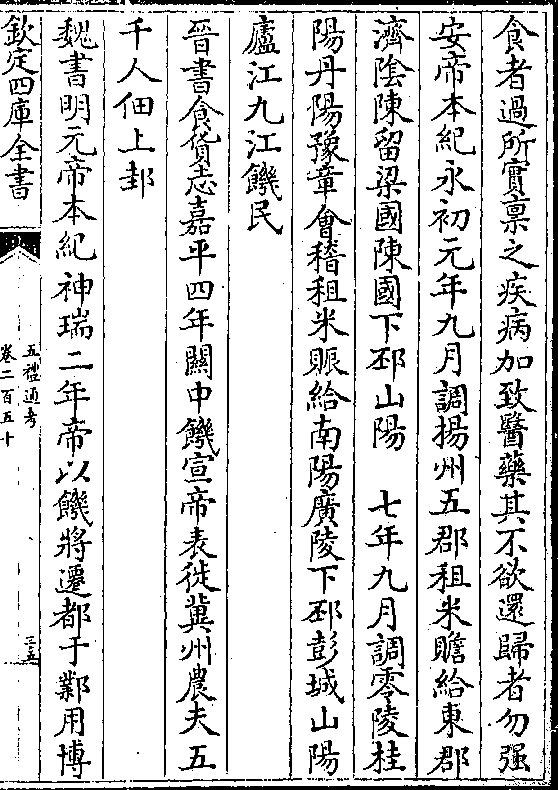 食者過所實稟之疾病加致醫藥其不欲還歸者勿强
安帝本紀永初元年九月調揚州五郡租米贍給東郡
濟陰陳留梁國陳國下邳山陽　七年九月調零陵桂
陽丹陽豫章會稽租米賑給南陽廣陵下邳彭城山陽
廬江九江饑民
晉書食貨志嘉平四年關中饑宣帝表徙冀州農夫五
千人佃上邽
魏書明元帝本紀神瑞二年帝以饑將遷都于鄴用博
欽定四庫全書
五禮通考
卷二百五十
三五